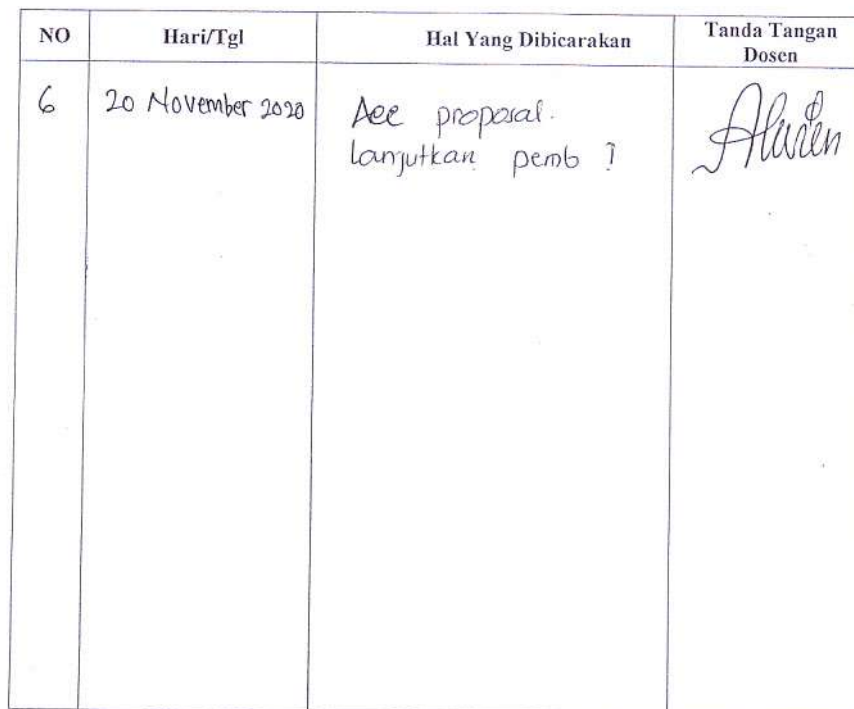 NO Hari/Tgl Hal Yang Dibicarakan Tanda Tangan
Dosen
6 20 November 2020 Acc proposal.
lanjutkan pemb I